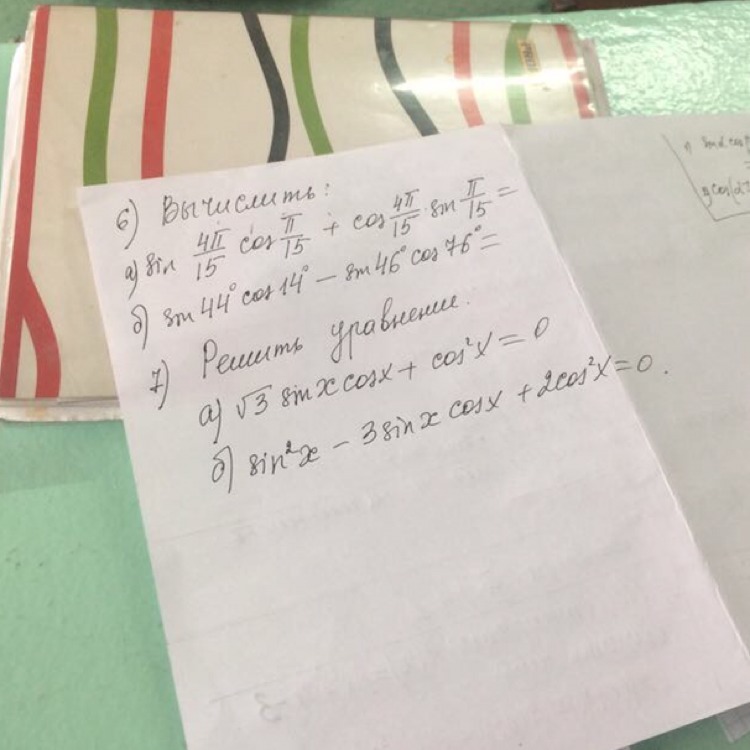 6) Вычислить:
а) sin 4π/15 cos π/15 + cos 4π/15 · sin π/15 =
б) sin 44° cos 14° − sin 46° cos 76° =
7) Решить уравнение.
а) √3 sin x cos x + cos²x = 0
б) sin²x − 3 sin x cos x + 2 cos²x = 0.